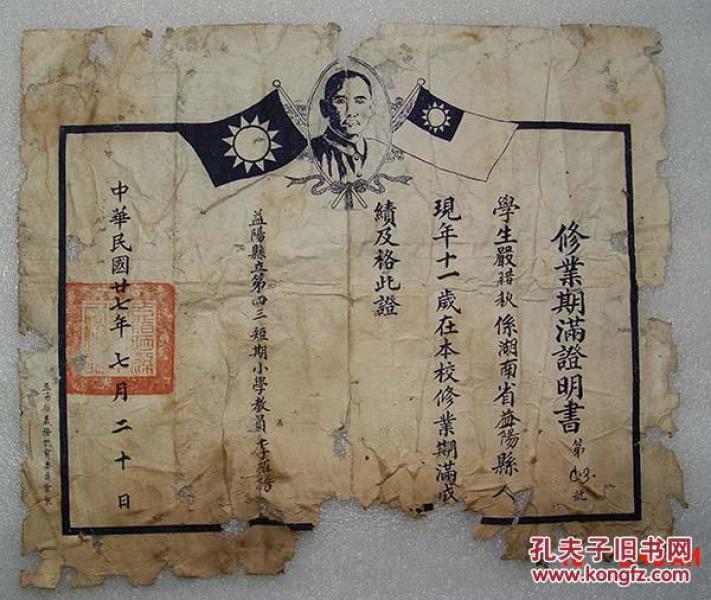 修業期滿證明書
第 號
學生嚴腊秋係湖南省益陽縣人
現年十一歲在本校修業期滿成
績及格此證
益陽縣立第四三短期小學教員李
中華民國廿七年七月二十日
孔夫子旧书网
www.kongfz.com